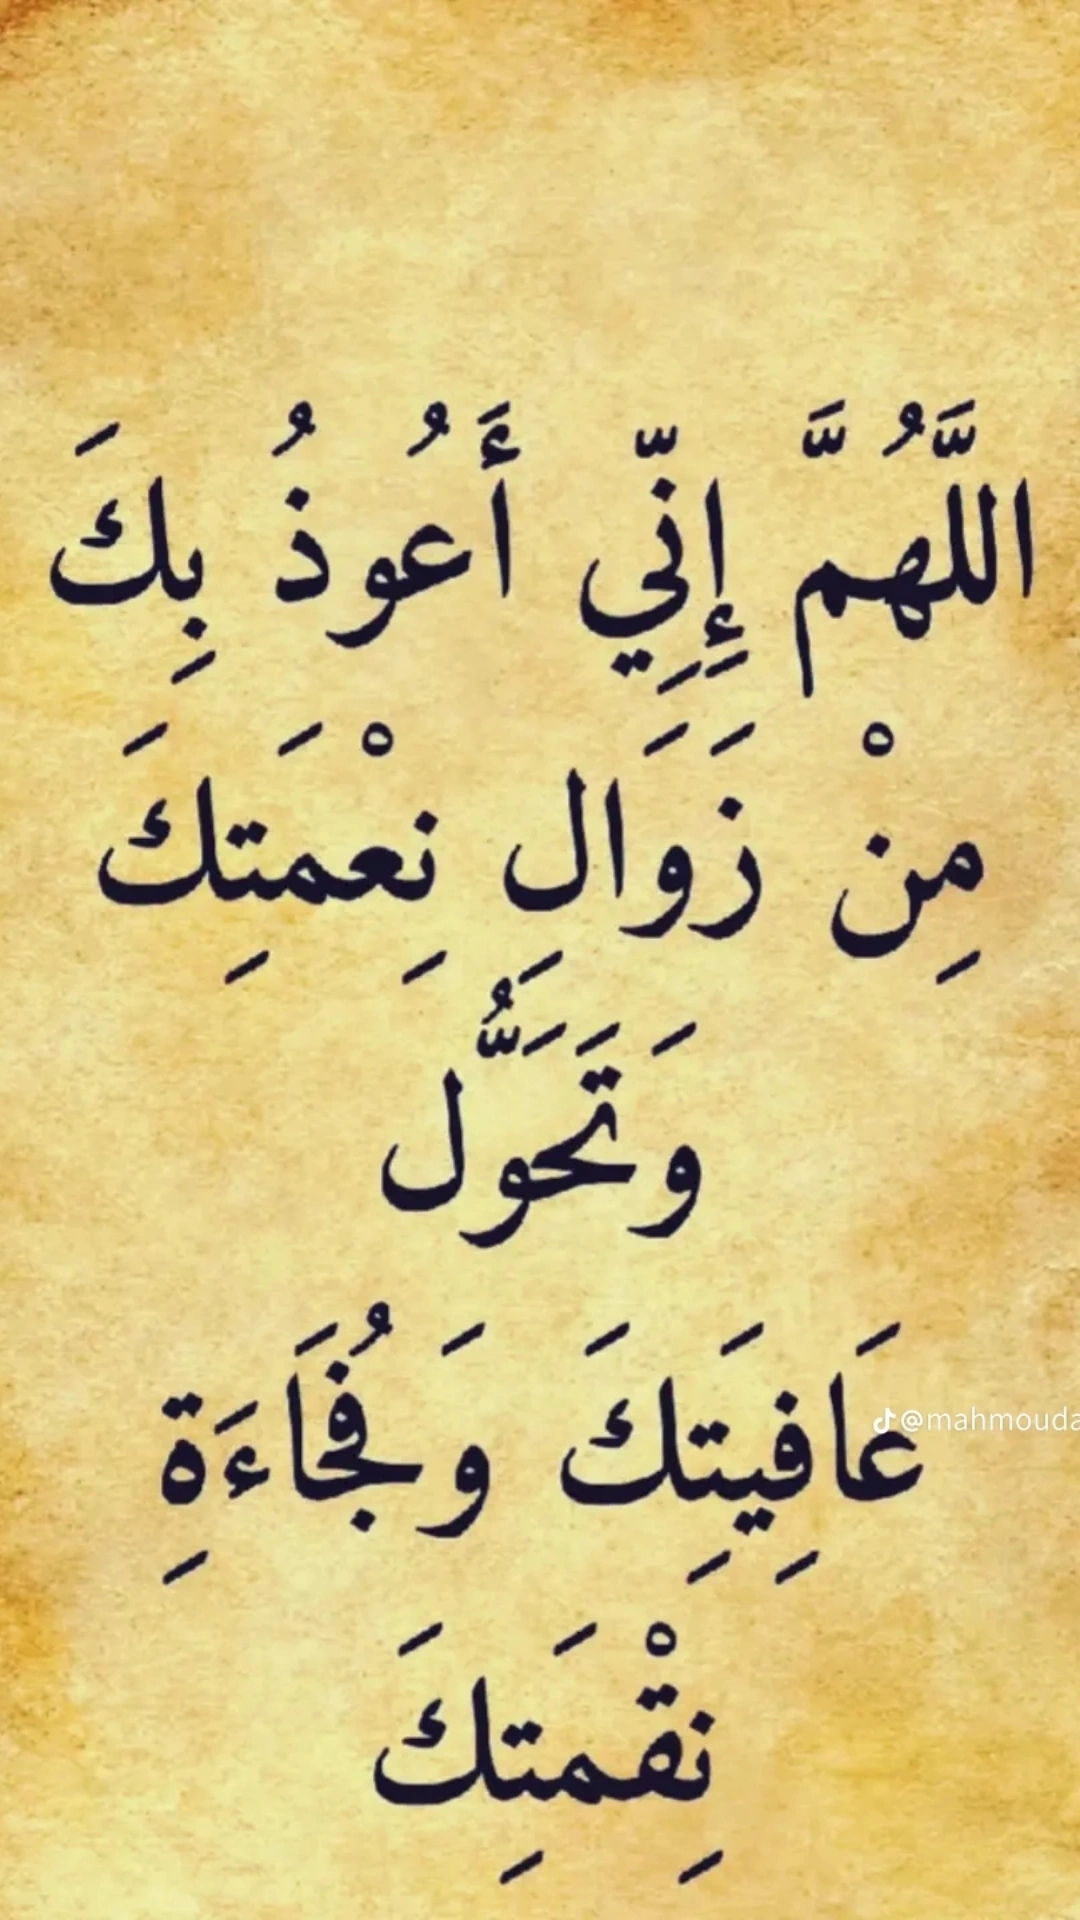 اللَّهُمَّ إِنِّي أَعُوذُ بِكَ
مِنْ زَوَالِ نِعْمَتِكَ
وَتَحَوَُّل
عَافِيَتِكَ وَفُجَاءَةِ
نِقْمَتِكَ
@mahmouda